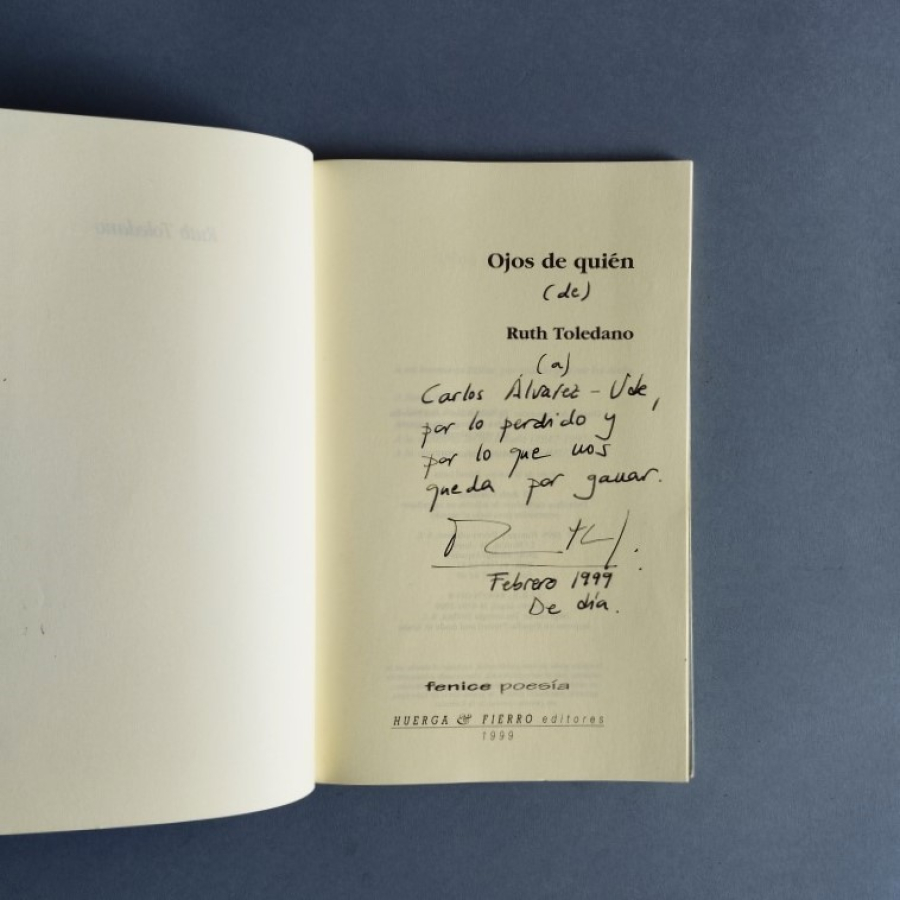 Ruth Toledano
Ojos de quién
(de)
Ruth Toledano
(a)
Carlos Álvarez-Ude,
por lo perdido y
por lo que nos
queda por ganar.
Ruth.
Febrero 1999
De día.
fenice poesía
HUERGA & FIERRO editores
1999